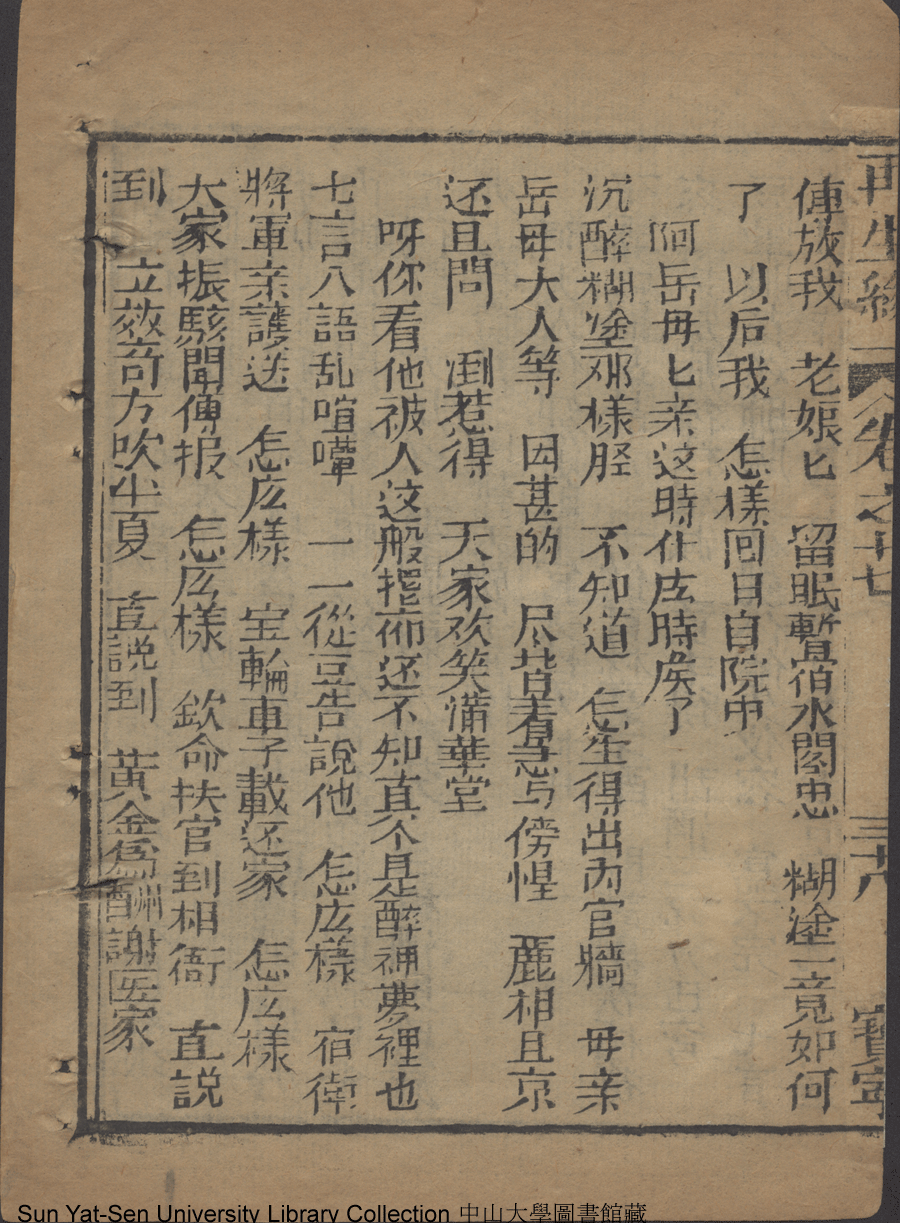 再生緣 卷之十七 三十八 寶寧
俥放我 老娘匕 留眠暫宿水閣忠 糊塗一竟如何
了 以后我 怎樣回日自院中
阿岳毋匕亲这時什庅時矦了
沉醉糊塗邓樣胫 不知道 怎生得出內官牆 毋亲
岳毋大人等 因甚的 尽皆着急与傍惶 麗相且京
还且問 倒惹得 天家欢笑滿華堂
呀你看他被人这般摆佈还不知直个是醉裡夢裡也
七言八語乱喧嘩 一一從豆告説他 怎庅樣 宿衛
將軍亲護送 怎庅樣 宝輪車子載还家 怎庅樣
大家振駭聞傳报 怎庅樣 欽命扶官到相衙 直説
到 立效奇方吹半夏 直説到 黃金爲酬謝医家
Sun Yat-Sen University Library Collection 中山大學圖書館藏